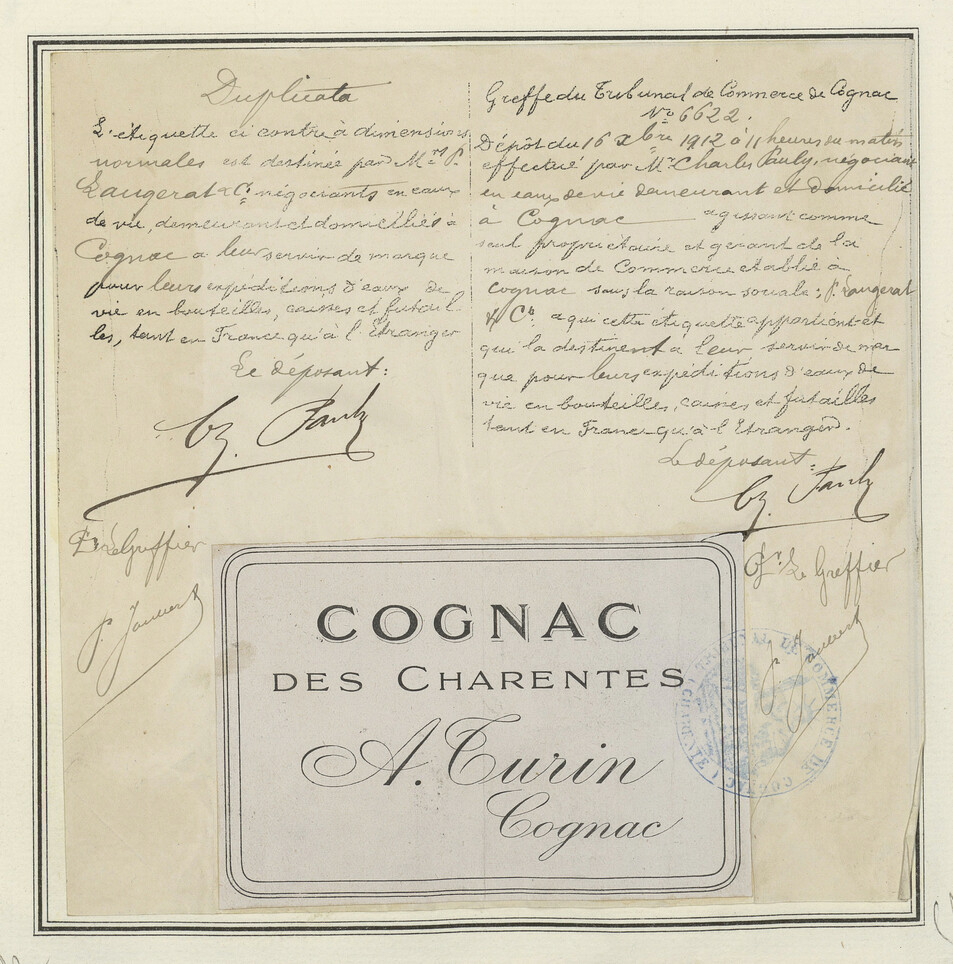 Duplicata
L'étiquette ci contre à dimensions
normales est destinée par Mrs P.
Laugerat & Cie négociants en eaux
de vie, demeurant et domiciliés à
Cognac a leur servir de marque
pour leurs expéditions d'eaux de
vie en bouteilles, caisses et futail
les, tant en France qu'à l'Etranger
Le déposant:
Ch. Pauly
Pr Le Greffier
P. Joubert
Greffe du Tribunal de Commerce de Cognac
No 6622.
Dépôt du 16 Xbre 1912 à 11 heures du matin
effectué par Mr Charles Pauly, négociant
en eaux de vie demeurant et domicilié
à Cognac agissant comme
seul propriétaire et gérant de la
maison de Commerce établie à
Cognac sous la raison sociale: P. Laugerat
& Cie a qui cette étiquette appartient et
qui la destinent à leur servir de mar
que pour leurs expéditions d'eaux de
vie en bouteilles, caisses et futailles
tant en France qu'à l'Etranger.
Le déposant:
Ch. Pauly
Pr Le Greffier
P. Joubert
COGNAC
DES CHARENTES
A. Turin
Cognac
TRIBUNAL DE COMMERCE DE COGNAC (CHARENTE)